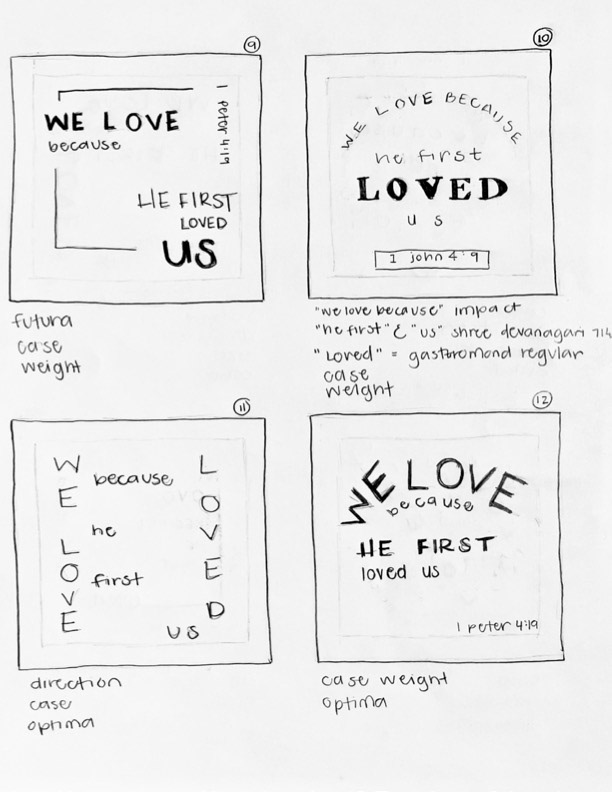 9
WE LOVE
because
1 Peter 4:19
HE FIRST
LOVED
US
futura
case
weight
10
WE LOVE BECAUSE
he first
LOVED
us
1 john 4:9
"we love because" impact
"he first" & "us" shree devanagari 714
"Loved" = gastromond regular
case
weight
11
WE LOVE
because
he
first
LOVED
us
direction
case
optima
12
WE LOVE
because
HE FIRST
loved us
1 peter 4:19
case weight
optima